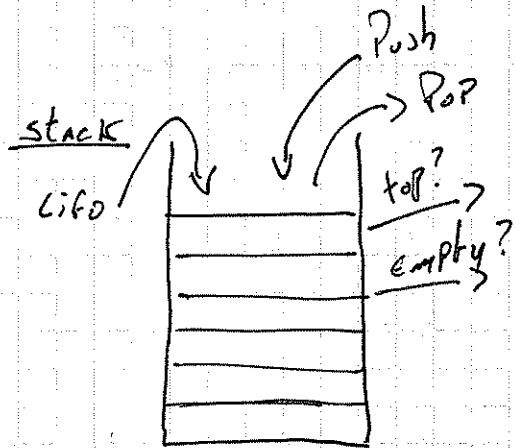 Push
Pop
stack
Lifo
top?
empty?